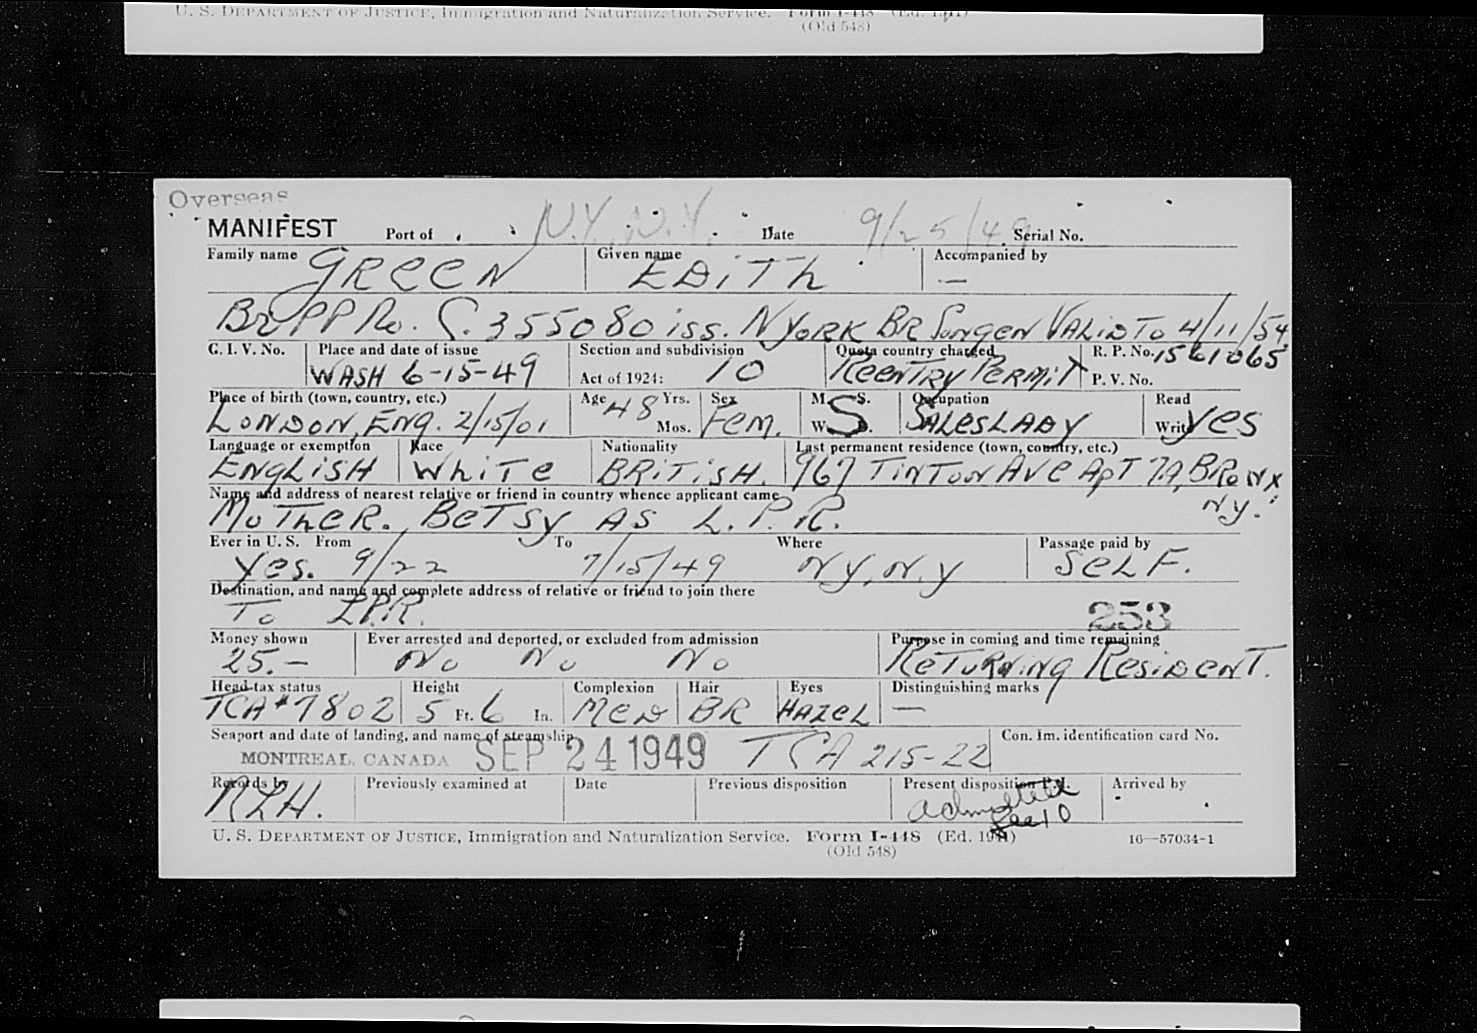 U. S. DEPARTMENT OF JUSTICE, Immigration and Naturalization Service. Form I-448 (Ed. 1941)
(Old 548)
Overseas
MANIFEST Port of N.Y. N.Y. Date 9/25/49 Serial No.
Family name GREEN Given name EDITH Accompanied by —
BR PP No. C. 355080 iss. N YORK BR CONGEN VALID TO 4/11/54
G. I. V. No. Place and date of issue WASH 6-15-49 Section and subdivision Act of 1924: 10 Quota country charged REENTRY PERMIT R. P. No. 1561065 P. V. No.
Place of birth (town, country, etc.) LONDON, ENG. 2/15/01 Age 48 Yrs. Mos. Sex Fem. M. S. W. S Occupation SALESLADY Read Write Yes
Language or exemption ENGLISH Race WHITE Nationality BRITISH. Last permanent residence (town, country, etc.) 967 TINTON AVE APT 7A, BRONX NY.
Name and address of nearest relative or friend in country whence applicant came
MOTHER. BETSY AS L.P.R.
Ever in U. S. Yes. From 9/22 To 7/15/49 Where NY, N.Y Passage paid by SELF.
Destination, and name and complete address of relative or friend to join there
To L.P.R. 253
Money shown 25.— Ever arrested and deported, or excluded from admission No No No Purpose in coming and time remaining RETURNING RESIDENT.
Head-tax status TCA # 7802 Height 5 Ft. 6 In. Complexion MED Hair BR Eyes HAZEL Distinguishing marks —
Seaport and date of landing, and name of steamship MONTREAL, CANADA SEP 24 1949 TCA 215-22 Con. Im. identification card No.
Records by RLH. Previously examined at Date Previous disposition Present disposition admitted Sec 10 Arrived by
U. S. DEPARTMENT OF JUSTICE, Immigration and Naturalization Service. Form I-448 (Ed. 1941) 16—57034-1
(Old 548)